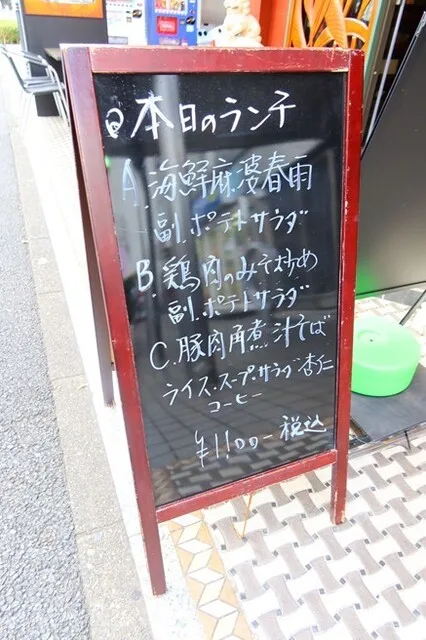 本日のランチ
A.海鮮麻婆春雨
副.ポテトサラダ
B.鶏肉のみそ炒め
副.ポテトサラダ
C.豚肉角煮汁そば
ライス・スープ・サラダ・杏仁
コーヒー
¥1,100-税込